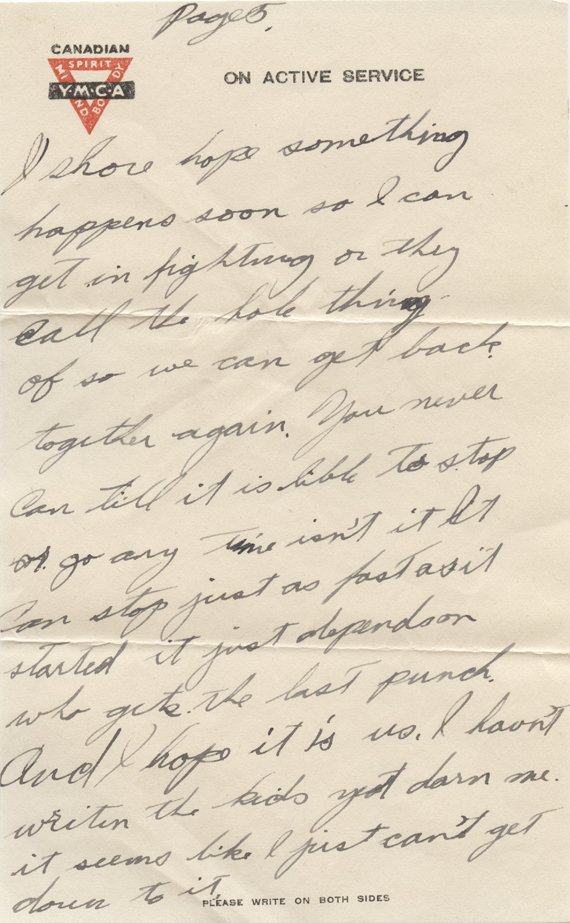 Page 5.
CANADIAN
SPIRIT
MIND
BODY
Y·M·C·A
ON ACTIVE SERVICE
I shore hope something
happens soon so I can
get in fighting or they
call the hole thing
of so we can get back
together again. You never
can till it is lible to stop
or go any time isn't it It
can stop just as fast as it
started it just depends on
who gets the last punch.
And I hope it is us. I havn't
writen the kids yet darn me.
it seems like I just can't get
down to it.
PLEASE WRITE ON BOTH SIDES